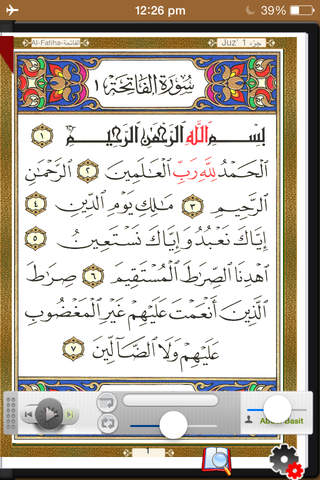 12:26 pm 39%
Al-Fatiha-الفاتحة Juz' 1 جزء ١
سُورَةُ الْفَاتِحَة ١
بِسْمِ اللَّهِ الرَّحْمَٰنِ الرَّحِيمِ ١
الْحَمْدُ لِلَّهِ رَبِّ الْعَالَمِينَ ٢ الرَّحْمَٰنِ
الرَّحِيمِ ٣ مَالِكِ يَوْمِ الدِّينِ ٤
إِيَّاكَ نَعْبُدُ وَإِيَّاكَ نَسْتَعِينُ ٥
اهْدِنَا الصِّرَاطَ الْمُسْتَقِيمَ ٦ صِرَاطَ
الَّذِينَ أَنْعَمْتَ عَلَيْهِمْ غَيْرِ الْمَغْضُوبِ
عَلَيْهِمْ وَلَا الضَّالِّينَ ٧
Basit
1